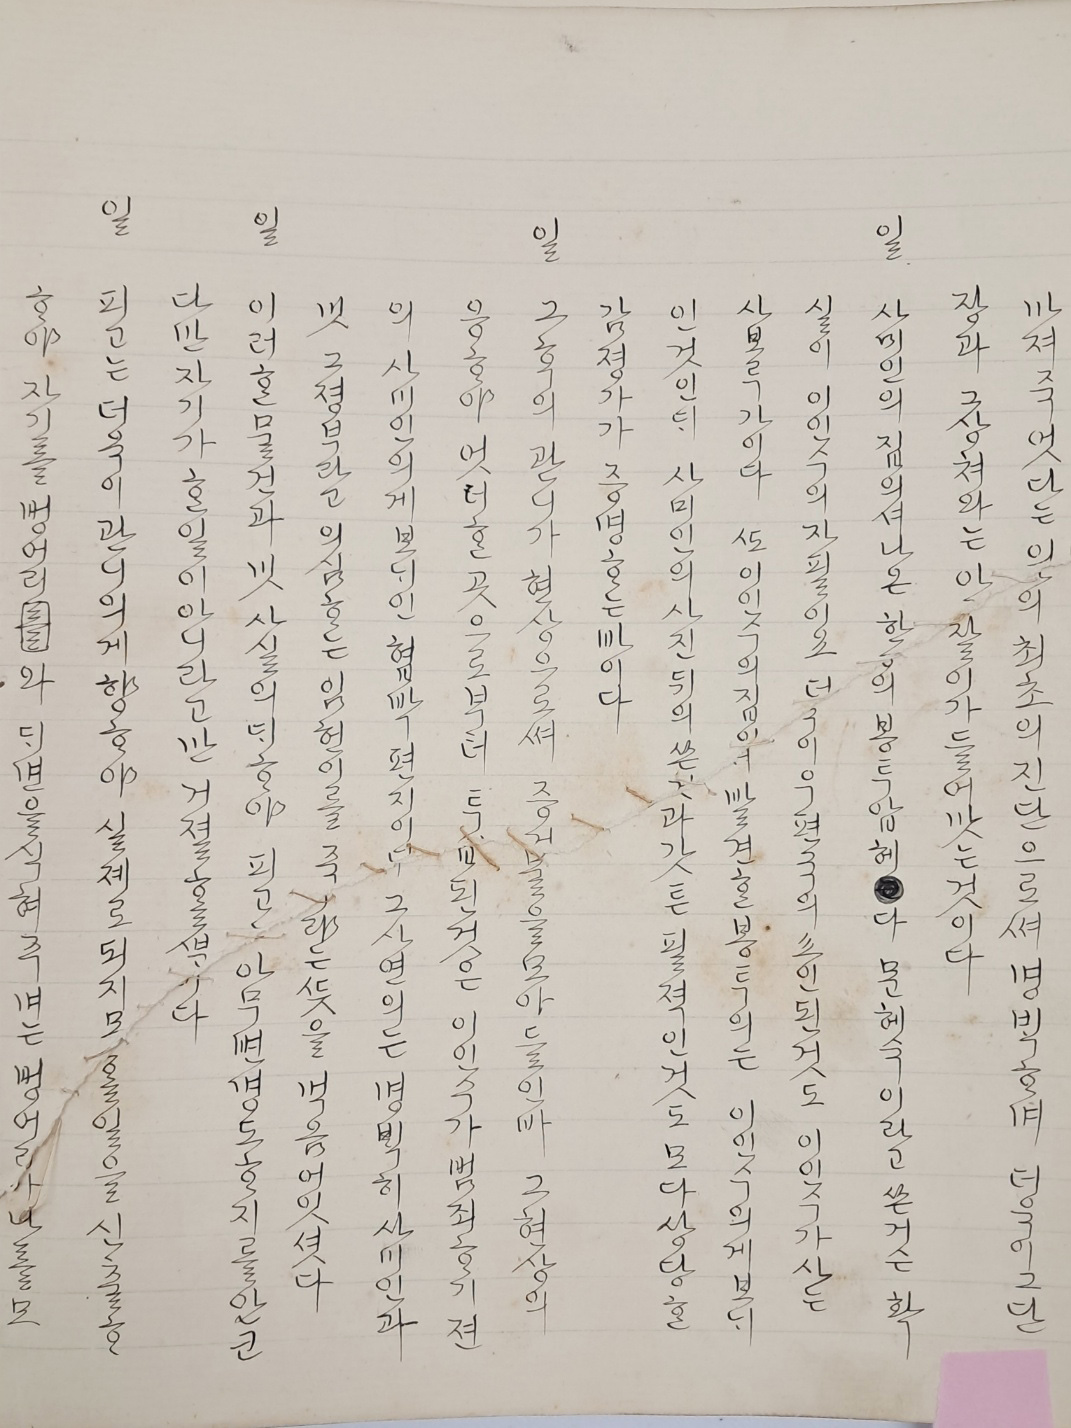 까져 죽엇다는 의원의 최초의 진단으로셔 명빅하며 더욱이 그 단
장과 그 상쳐와는 안 잘이가 들어맛는 것이다
일 사비인의 집의셔 나온 할 의 봉투 암혜 다 문혜숙이라고 쓴 거슨 확
실이 이인주의 자필이오 더구이 우편국의 소인 된 것도 이인주가 사는
사블루 가이다 또 이인주의 집의셔 발견한 봉투의는 이인주의게 보니
인 것인듸 사비인의 사진 뒤의 쓴 것과 갓튼 필젹인 것도 모다 상당한
감졍가가 증명하는 빠이다
일 그 후의 관니가 현상으로셔 증거물을 모아들인바 그 현상의
응하야 엇더한 곳으로부터 투 된 것은 이인주가 범죄하기 젼
의 사비인의게 보니인 협박 편지이 그 사연의는 명빅히 사비인과
밋 그 졍부라고 의심하는 임헌이를 죽 랴는 뜻을 먹음어 잇셧다
일 이러한 물건과 밋 사실의 듸하야 피고 아무 변명도 하지를 안코
다만 자기가 한 일이 아니라고만 거졀을 할 다
일 피고는 더욱이 관니의게 향하야 실졔로 되지 못할 일을 신쳥을 하
하야 자기를 벙어리 와 듸면을 식혀 주면는 벙어리가 나를 모